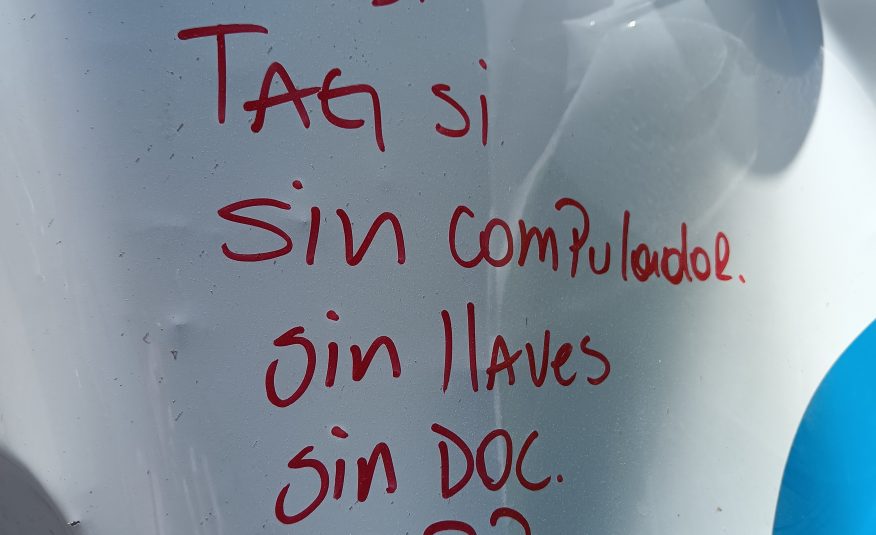 TAG si
sin compulador.
sin llaves
sin DOC.